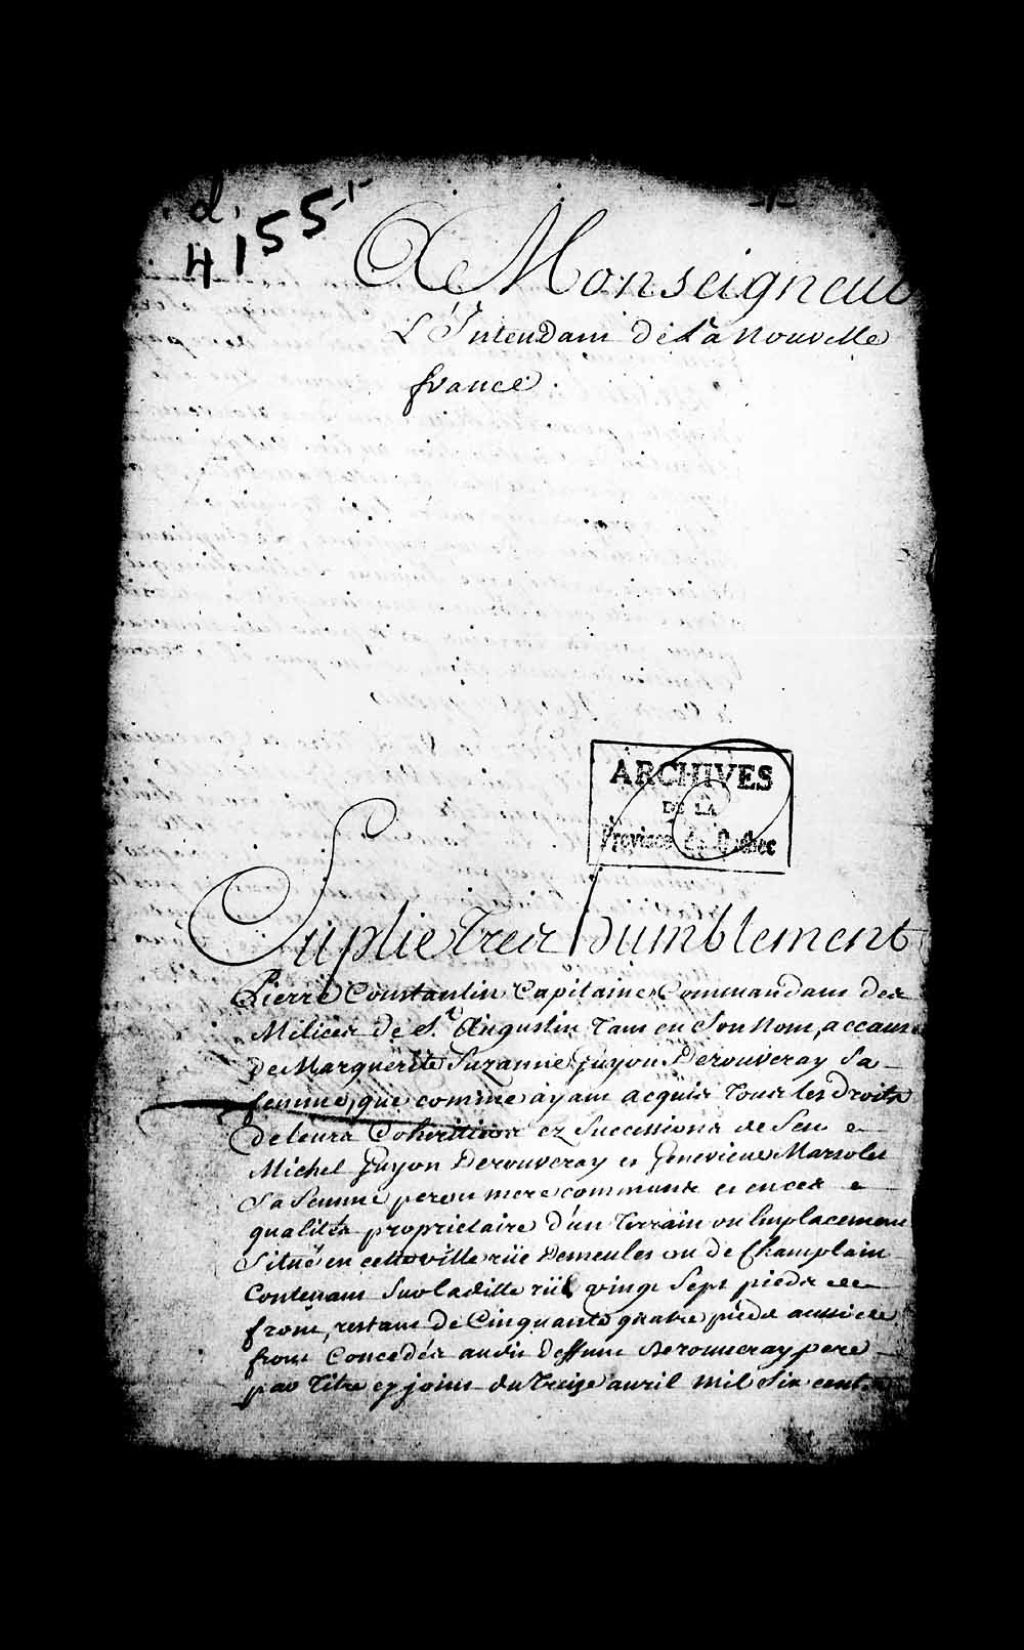 d.
4155 -1-
-1-
A Monseigneur
L'Intendant De La Nouvelle
france.
ARCHIVES
DE LA
Province de Québec
Suplie Tres humblement
Pierre Constantin Capitaine Commandant des
Milices De St. Augustin Tant en Son Nom, a cause
de Marguerite Suzanne Guyon Derouveray Sa
femme, que comme ayant acquis Tous les Droits
de leurs Coheritiers ez Successions de feu
Michel Guyon Derouveray et Genevieve Marsolet
Sa femme pere et mere communs et en ces
qualités proprietaire d'un Terrain ou Emplacement
Situé en cette ville rüe Demeules ou de Champlain
Contenant Sur laditte rüe vingt Sept pieds de
front, restant de Cinquante quatre pieds aussi de
front Concedés audit deffunt Derouveray pere
par Titre cy joint du Treize avril mil Six cent